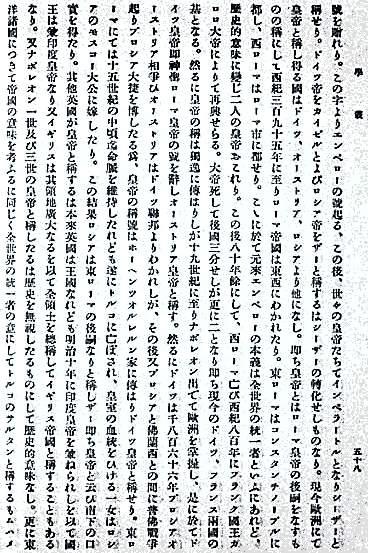 學叢
五十八
號を贈れり。この字よりエンペローの號起る。この後、世々の皇帝たちてインペラートルとなりシーザーと
稱せり。ドイツ帝をカイゼルとよびロシア帝をザーと稱するはシーザーの轉化せしものなり。現今歐洲にて
皇帝と稱し得る國はドイツ、オーストリア、ロシアより他になし。即ち皇帝とはローマ皇帝の後嗣をなすも
のの稱にして西紀三百九十五年に至りローマ帝國は東西にわかれたり。東ローマはコンスタンチノープルに
都し、西ローマはローマ市に都せり。こゝに於て元來エンペローの本義は全世界の統一者といふにあれど、
歷史的意味に變じ二人の皇帝おこれり。この後八十年餘にして、西ローマ亡び西紀八百年にフランク國王カ
ロロ大帝によりて再興せらる。大帝死して後國三分せしが更に二となり即ち現今のドイツ、フランス兩國の
基となる。然るに皇帝の稱は獨逸に傳はりしが十九世紀に至りナポレオン出でて歐洲を掌握し、是に於てド
イツ皇帝即神聖ローマ皇帝の號を辭しオーストリア皇帝と稱す。然るにドイツは千八百六十六年プロシアオ
ーストリア相爭ひオーストリアはドイツ聯邦よりわかれしが、その後又プロシアと佛蘭西との間に普佛戰爭
起りプロシア大捷を博したる爲、皇帝の稱號はホーヘンツオルレルン家に傳はりドイツ皇帝と稱せり。東ロ
ーマにては十五世紀の中頃迄命脈を維持したれども遂にトルコに亡ぼされ、皇室の血統をひける一女はロシ
アのモスコー大公に嫁したり。この結果ロシアは東ローマの後嗣なりと稱しザー即ち皇帝と云び南下の口
實を得たり。其他英國が皇帝と稱するは本來英國は王國なれども明治十年に印度皇帝を兼ねられしを以て國
王は兼印度皇帝なり又イギリスは其領地廣大なるを以て全領土を總稱してイギリス帝國と稱することもある
なり。又ナポレオン一世及び三世の皇帝と稱したるは歷史を無視したるものにして歷史的意味なし。更に東
洋諸國につきて帝國の意味を考ふるに同じく全世界の統一者の意にしてトルコのサルタンと稱するもムハメ